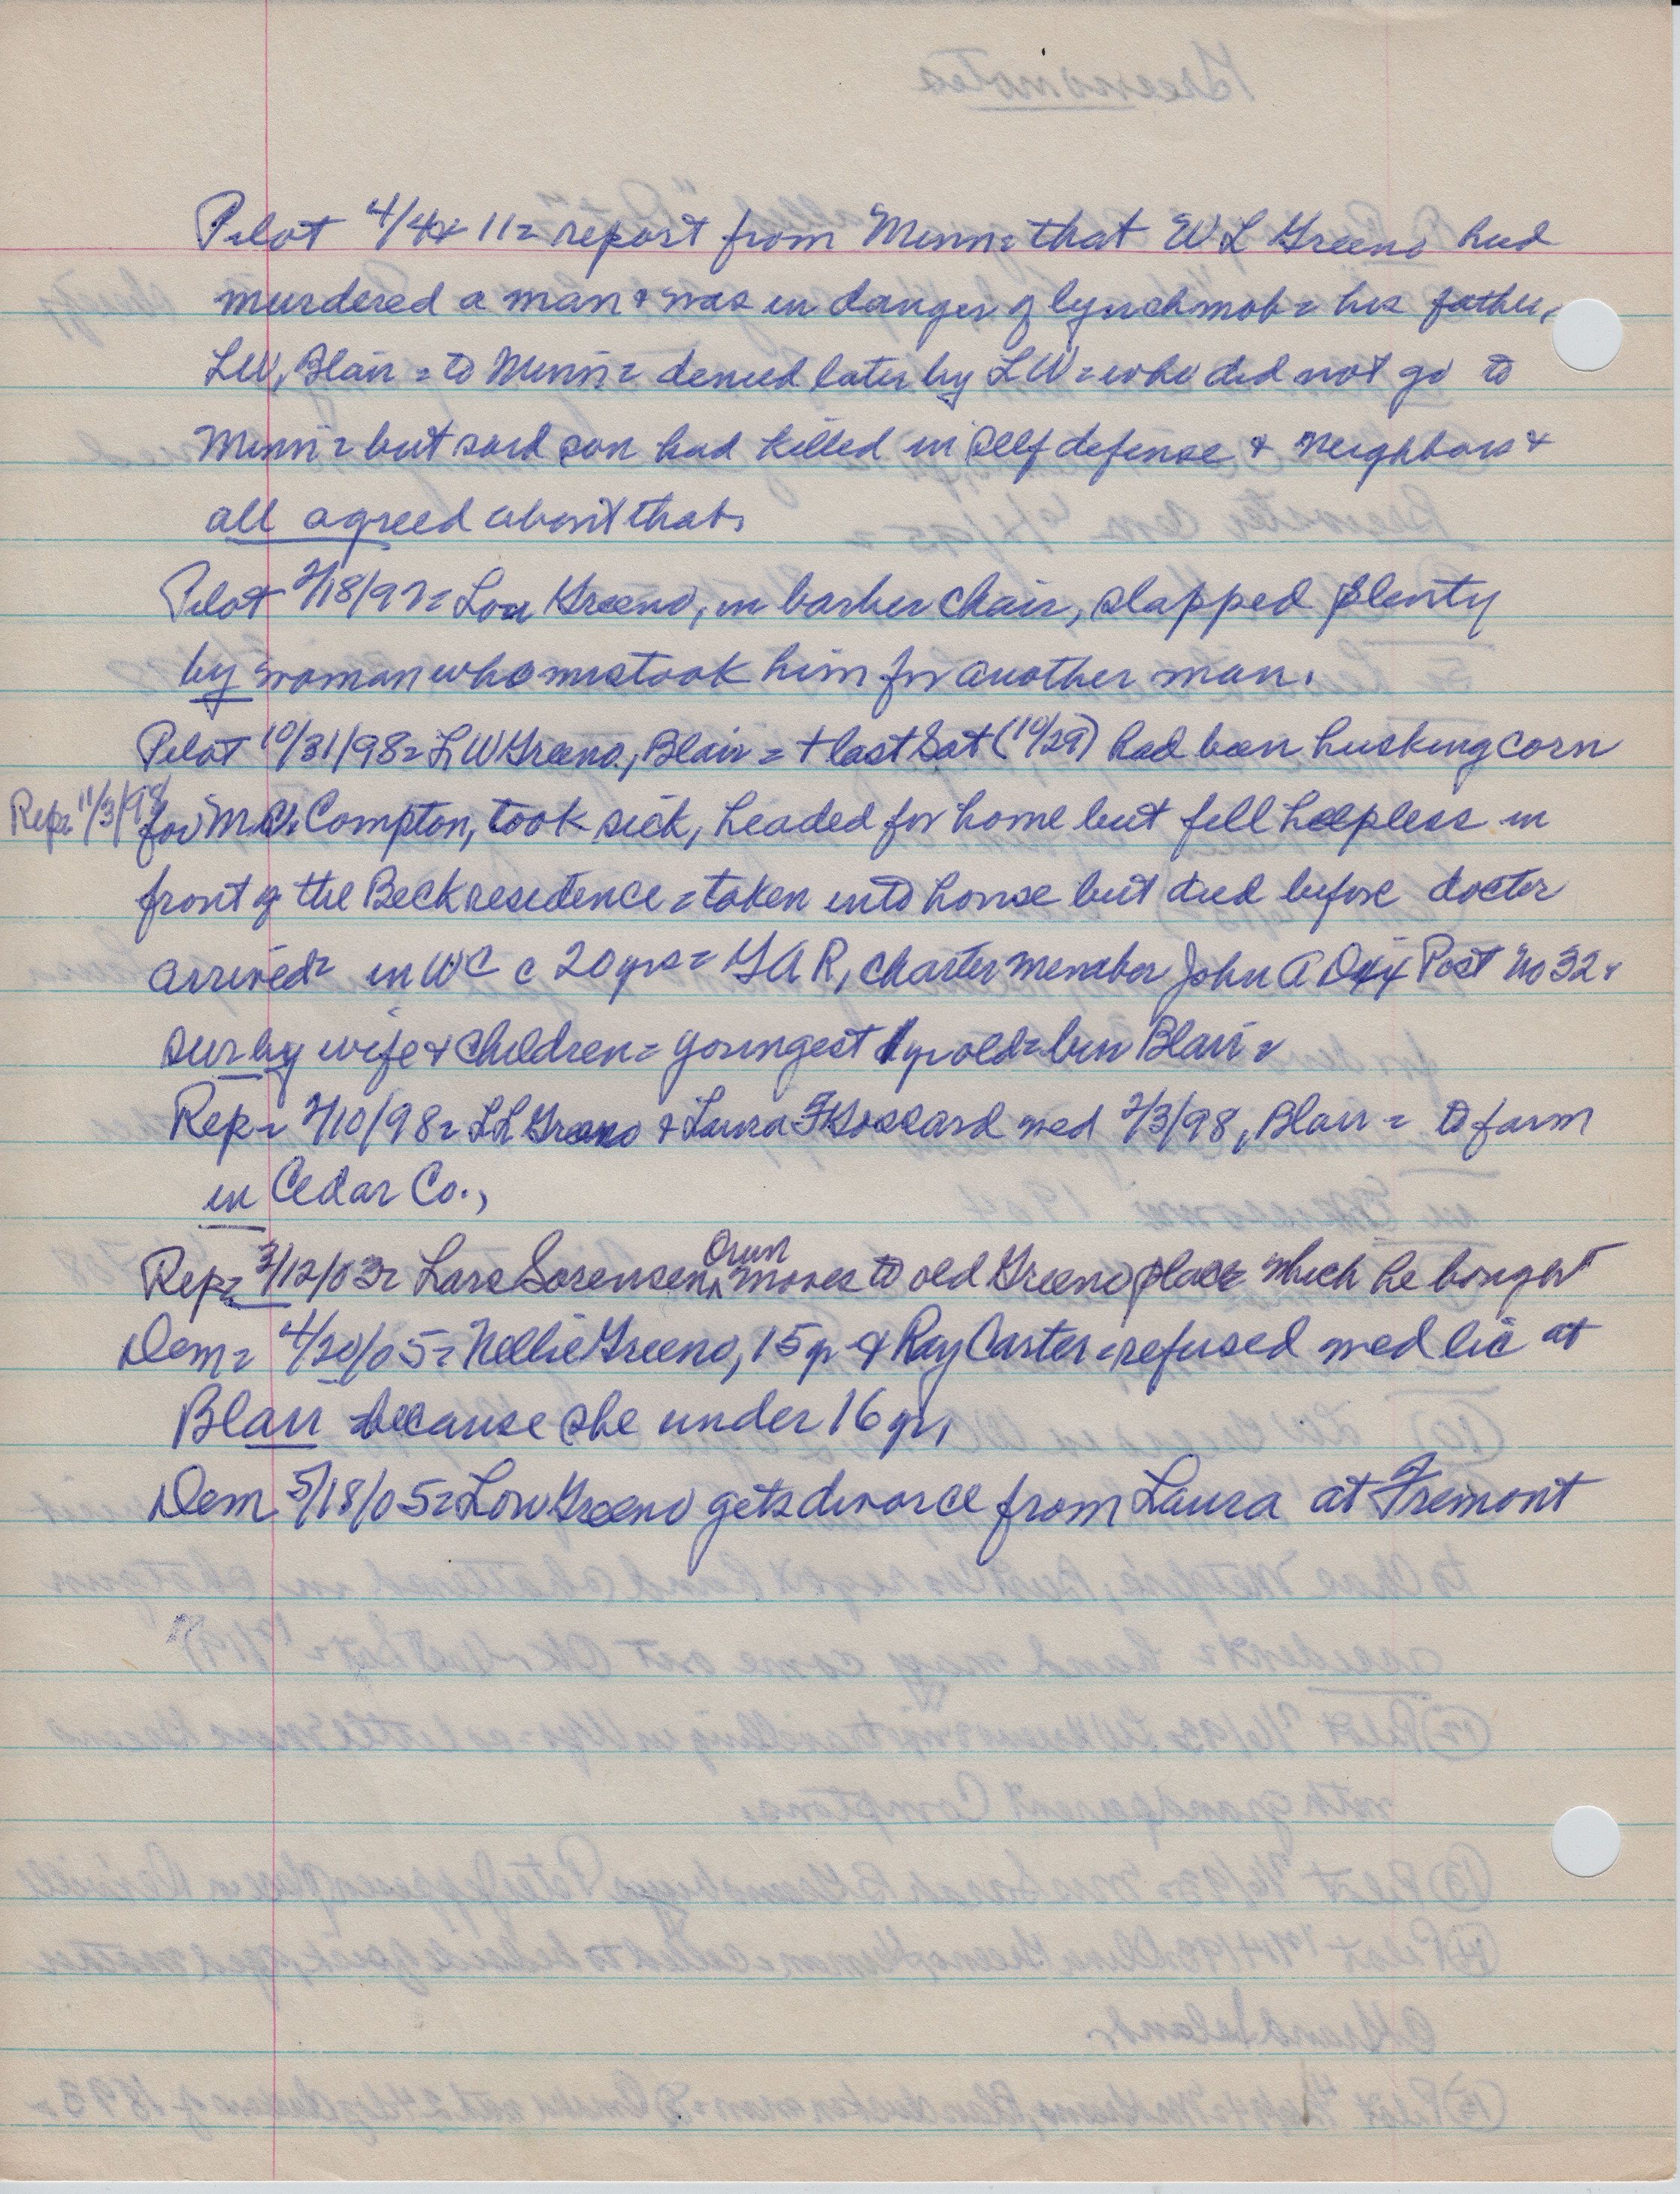 Pilot 4/4 & 11 = report from Minn = that W L Greeno had
murdered a man & was in danger of lynchmob = his father,
LW, Blair = to Minn = denied later by LW = who did not go to
Minn = but said son had killed in self defense & neighbors &
all agreed about that.
Pilot 2/18/97 = Lou Greeno, in barber chair, slapped plenty
by woman who mistook him for another man.
Pilot 10/31/98 = L W Greeno, Blair = + last Sat (10/29) had been husking corn
Rep = 11/3/98 for M.C. Compton, took sick, headed for home but fell helpless in
front of the Beck residence = taken into house but died before doctor
arrived = in WC c 20 yrs = GAR, charter member John A Dix Post No 32 &
sur by wife & children = youngest 1 yr old = bur Blair =
Rep = 2/10/98 = LL Greeno & Laura Gossard wed 2/3/98, Blair = to farm
in Cedar Co.,
Rep = 3/12/03 = Lars Sorensen, Orum moves to old Greeno place which he bought
Dem = 4/20/05 = Nellie Greeno, 15 yr & Ray Carter = refused wed lic at
Blair because she under 16 yr,
Dem 5/18/05 = Lou Greeno gets divorce from Laura at Fremont